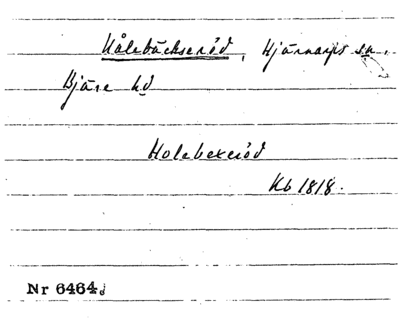 Hålebäckseröd, Hjärnarps sn.
Bjäre hd
Holebexeröd
Kb 1818.
Nr 6464